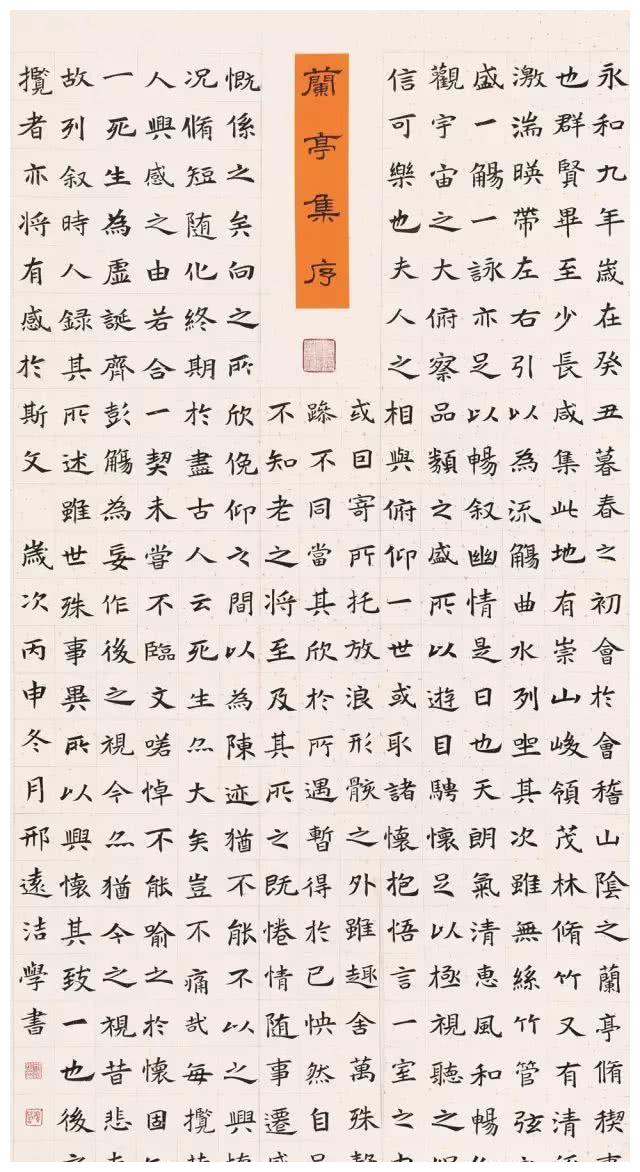 蘭亭集序
永和九年歲在癸丑暮春之初會於會稽山陰之蘭亭脩稧
也群賢畢至少長咸集此地有崇山峻領茂林脩竹又有清
激湍暎帶左右引以為流觴曲水列坐其次雖無絲竹管弦
盛一觴一詠亦足以暢叙幽情是日也天朗氣清惠風和暢
觀宇宙之大俯察品類之盛所以遊目騁懷足以極視聽之
信可樂也夫人之相與俯仰一世或取諸懷抱悟言一室之
或曰寄所托放浪形骸之外雖趣舍萬殊
躁不同當其欣於所遇暫得於己怏然自
不知老之將至及其所之既惓情随事遷
慨係之矣向之所欣俛仰之間以為陳迹猶不能不以之興
况脩短随化終期於盡古人云死生亦大矣豈不痛哉每攬
人興感之由若合一契未嘗不臨文嗟悼不能喻之於懷固
一死生為虛誕齊彭觴為妄作後之視今亦猶今之視昔悲
故列叙時人録其所述雖世殊事異所以興懷其致一也後
攬者亦將有感於斯文 歲次丙申冬月邢遠洁學書